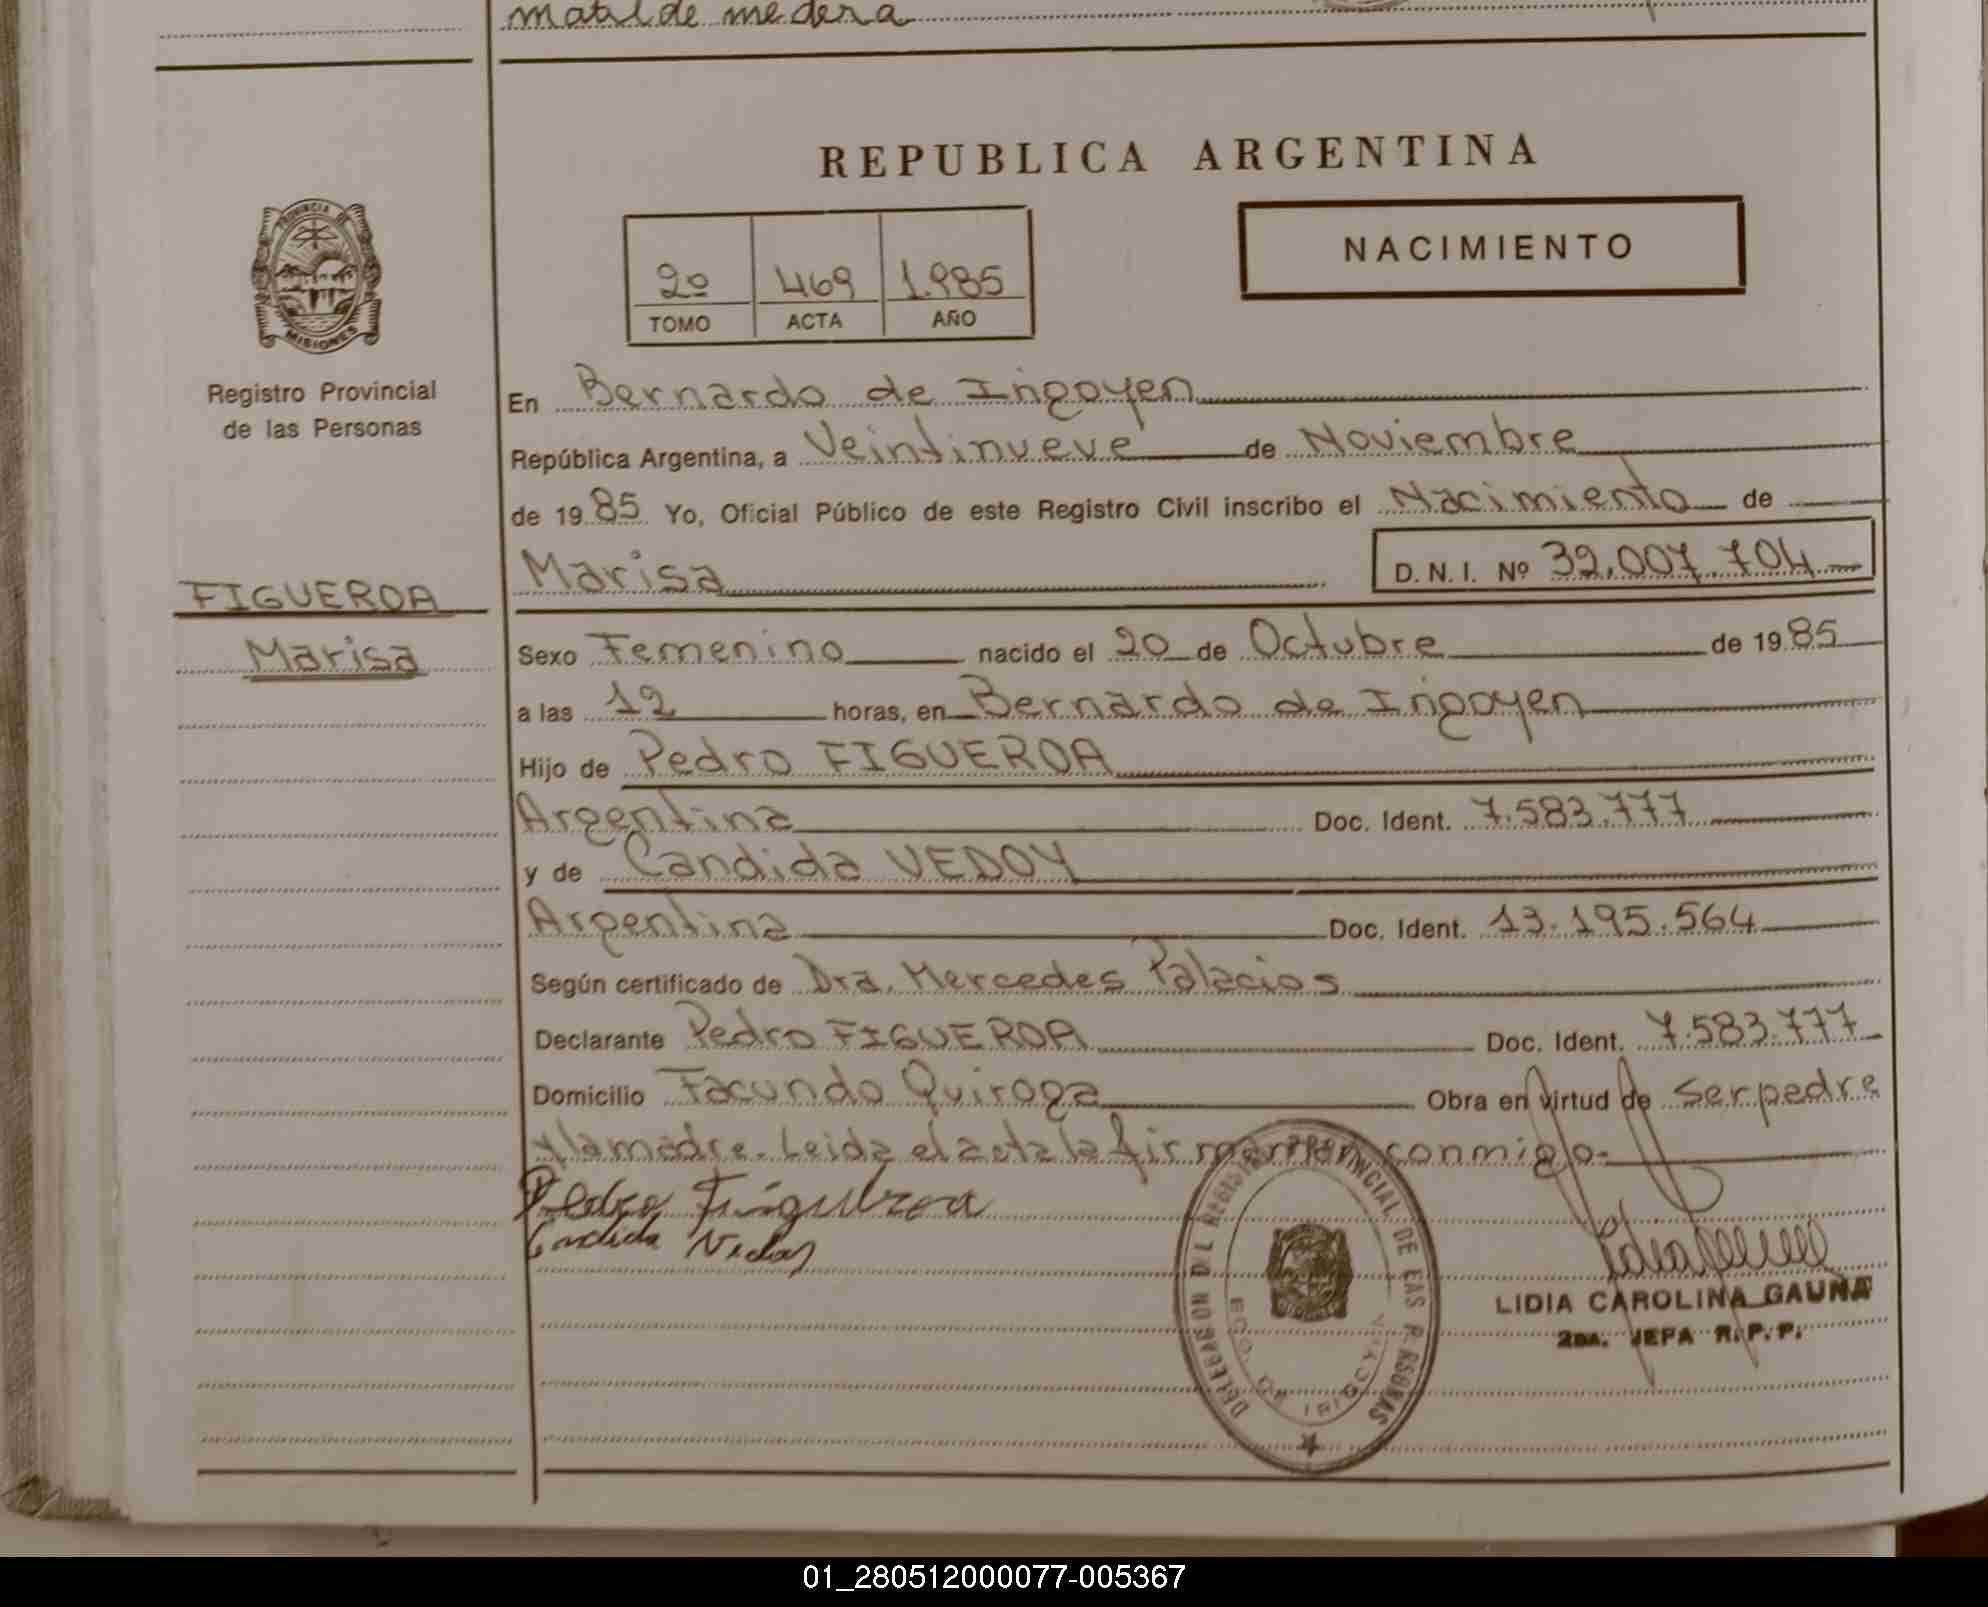 matilde medera
REPUBLICA ARGENTINA
NACIMIENTO
2º 469 1.985
TOMO ACTA AÑO
PROVINCIA DE MISIONES
Registro Provincial
de las Personas
FIGUEROA
Marisa
En Bernardo de Irigoyen
República Argentina, a Veintinueve de Noviembre
de 1985 Yo, Oficial Público de este Registro Civil inscribo el Nacimiento de
Marisa D. N. I. Nº 32.007.704
Sexo Femenino nacido el 20 de Octubre de 1985
a las 12 horas, en Bernardo de Irigoyen
Hijo de Pedro FIGUEROA
Argentina Doc. Ident. 7.583.777
y de Candida VEDOY
Argentina Doc. Ident. 13.195.564
Según certificado de Dra. Mercedes Palacios
Declarante Pedro FIGUEROA Doc. Ident. 7.583.777
Domicilio Facundo Quiroga Obra en virtud de ser pedre
y la madre. Leida el acta la firman conmigo.
Pedro Figueroa
Candida Vedoy
DELEGACION DEL REGISTRO PROVINCIAL DE LAS PERSONAS
BDO. DE IRIGOYEN
LIDIA CAROLINA GAUNA
2DA. JEFA R.P.P.
01_280512000077-005367